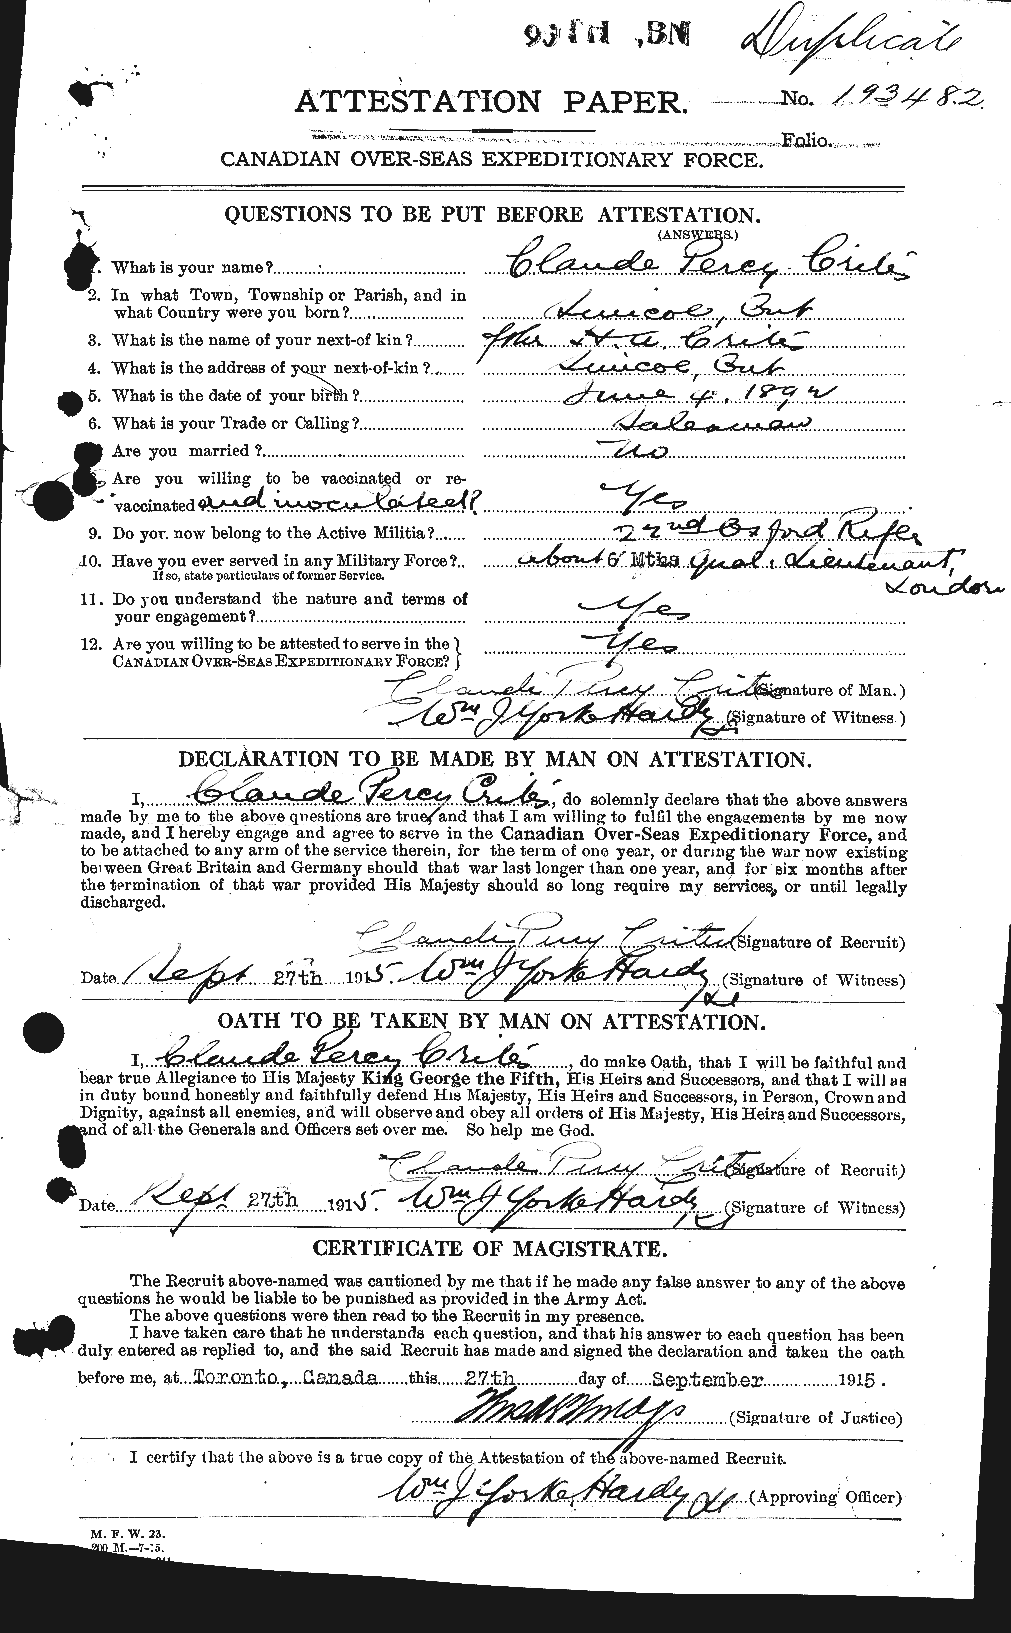 Duplicate
ATTESTATION PAPER. No. 193482
Folio.
CANADIAN OVER-SEAS EXPEDITIONARY FORCE.
QUESTIONS TO BE PUT BEFORE ATTESTATION.
(ANSWERS.)
1. What is your name? Claude Percy Crites
2. In what Town, Township or Parish, and in
what Country were you born? Simcoe, Ont
3. What is the name of your next-of kin? H. A. Crites
4. What is the address of your next-of-kin? Simcoe, Ont
5. What is the date of your birth? June 4, 1892
6. What is your Trade or Calling? Salesman
Are you married? No
8. Are you willing to be vaccinated or re-
vaccinated and inoculated? Yes
9. Do you now belong to the Active Militia? 22nd Oxford Rifles
10. Have you ever served in any Military Force? about 6 Mths Qual. Lieutenant,
If so, state particulars of former Service. London
11. Do you understand the nature and terms of
your engagement? Yes
12. Are you willing to be attested to serve in the
CANADIAN OVER-SEAS EXPEDITIONARY FORCE? Yes
Claude Percy Crites (Signature of Man.)
Wm J Yorke Hardy Lt (Signature of Witness.)
DECLARATION TO BE MADE BY MAN ON ATTESTATION.
I, Claude Percy Crites, do solemnly declare that the above answers
made by me to the above questions are true, and that I am willing to fulfil the engagements by me now
made, and I hereby engage and agree to serve in the Canadian Over-Seas Expeditionary Force, and
to be attached to any arm of the service therein, for the term of one year, or during the war now existing
between Great Britain and Germany should that war last longer than one year, and for six months after
the termination of that war provided His Majesty should so long require my services, or until legally
discharged.
Claude Percy Crites (Signature of Recruit)
Date Sept 27th 1915. Wm J Yorke Hardy Lt (Signature of Witness)
OATH TO BE TAKEN BY MAN ON ATTESTATION.
I, Claude Percy Crites, do make Oath, that I will be faithful and
bear true Allegiance to His Majesty King George the Fifth, His Heirs and Successors, and that I will as
in duty bound honestly and faithfully defend His Majesty, His Heirs and Successors, in Person, Crown and
Dignity, against all enemies, and will observe and obey all orders of His Majesty, His Heirs and Successors,
and of all the Generals and Officers set over me. So help me God.
Claude Percy Crites (Signature of Recruit)
Date Sept 27th 1915. Wm J Yorke Hardy Lt (Signature of Witness)
CERTIFICATE OF MAGISTRATE.
The Recruit above-named was cautioned by me that if he made any false answer to any of the above
questions he would be liable to be punished as provided in the Army Act.
The above questions were then read to the Recruit in my presence.
I have taken care that he understands each question, and that his answer to each question has been
duly entered as replied to, and the said Recruit has made and signed the declaration and taken the oath
before me, at Toronto, Canada this 27th day of September 1915.
(Signature of Justice)
I certify that the above is a true copy of the Attestation of the above-named Recruit.
Wm J Yorke Hardy Lt (Approving Officer)
M. F. W. 23.
200 M.—7-15.